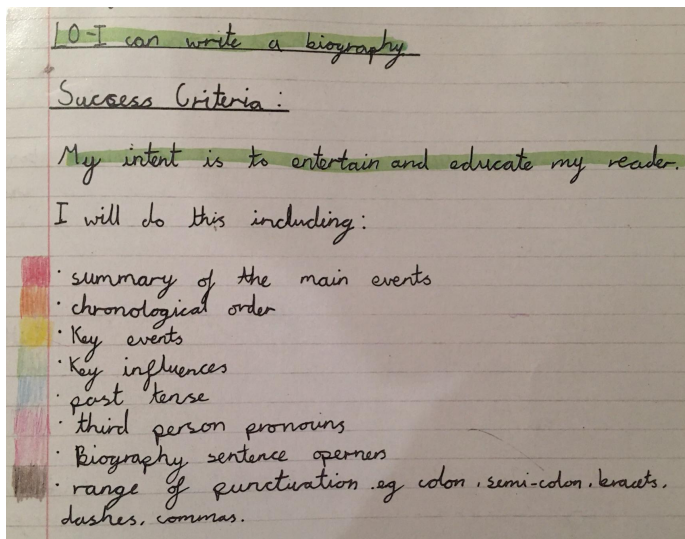 LO-I can write a biography
Success Criteria :
My intent is to entertain and educate my reader.
I will do this including :
· summary of the main events
· chronological order
· Key events
· Key influences
· past tense
· third person pronouns
· Biography sentence operners
· range of punctuation .eg colon , semi-colon , bracets,
dashes, commas.